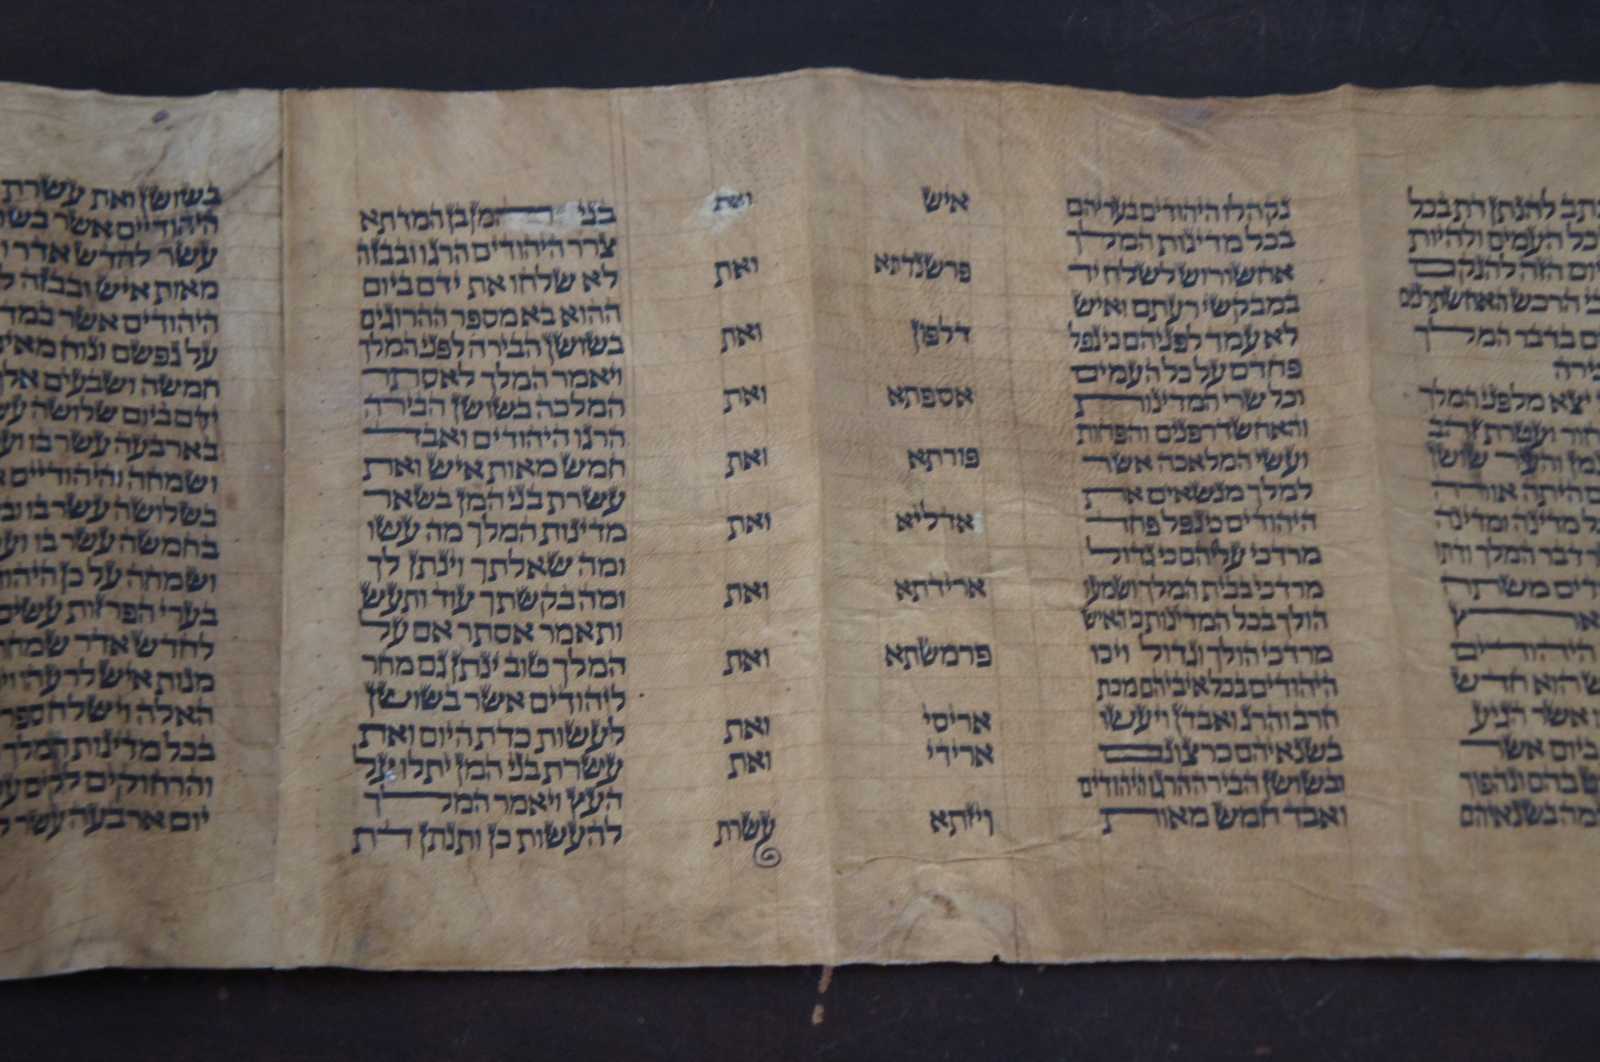 להנתן דת בכל
כל העמים ולהיות
יום הזה להנקם
הרכש האחשתרנים
בדבר המלך
בירה
יצא מלפני המלך
חור ועטרת זהב
והעיר שושן
היתה אורה
מדינה ומדינה
דבר המלך ודתו
משתה
היהודים
הוא חדש
אשר הגיע
ביום אשר
בהם ונהפוך
המה בשנאיהם
נקהלו היהודים בעריהם
בכל מדינות המלך
אחשורוש לשלח יד
במבקשי רעתם ואיש
לא עמד לפניהם כי נפל
פחדם על כל העמים
וכל שרי המדינות
והאחשדרפנים והפחות
ועשי המלאכה אשר
למלך מנשאים את
היהודים כי נפל פחד
מרדכי עליהם כי גדול
מרדכי בבית המלך ושמעו
הולך בכל המדינות כי האיש
מרדכי הולך וגדול ויכו
היהודים בכל איביהם מכת
חרב והרג ואבדן ויעשו
בשנאיהם כרצונם
ובשושן הבירה הרגו היהודים
ואבד חמש מאות
איש ואת
פרשנדתא ואת
דלפון ואת
אספתא ואת
פורתא ואת
אדליא ואת
ארידתא ואת
פרמשתא ואת
אריסי ואת
ארידי ואת
ויזתא עשרת
בני המן בן המדתא
צרר היהודים הרגו ובבזה
לא שלחו את ידם ביום
ההוא בא מספר ההרוגים
בשושן הבירה לפני המלך
ויאמר המלך לאסתר
המלכה בשושן הבירה
הרגו היהודים ואבד
חמש מאות איש ואת
עשרת בני המן בשאר
מדינות המלך מה עשו
ומה שאלתך וינתן לך
ומה בקשתך עוד ותעש
ותאמר אסתר אם על
המלך טוב ינתן גם מחר
ליהודים אשר בשושן
לעשות כדת היום ואת
עשרת בני המן יתלו על
העץ ויאמר המלך
להעשות כן ותנתן דת
בשושן ואת עשרת
היהודיים אשר בשו
עשר לחדש אדר וי
מאות איש ובבזה ל
היהודים אשר במד
על נפשם ונוח מאי
חמשה ושבעים אל
ידם ביום שלושה עש
בארבעה עשר בו וע
ושמחה והיהודיים א
בשלושה עשר בו וב
בחמשה עשר בו וע
ושמחה על כן היהו
בערי הפרזות עשים
לחדש אדר שמחה
מנות איש לרעהו וי
האלה וישלח ספר
בכל מדינות המלך
והרחוקים לקים על
יום ארבעה עשר ל